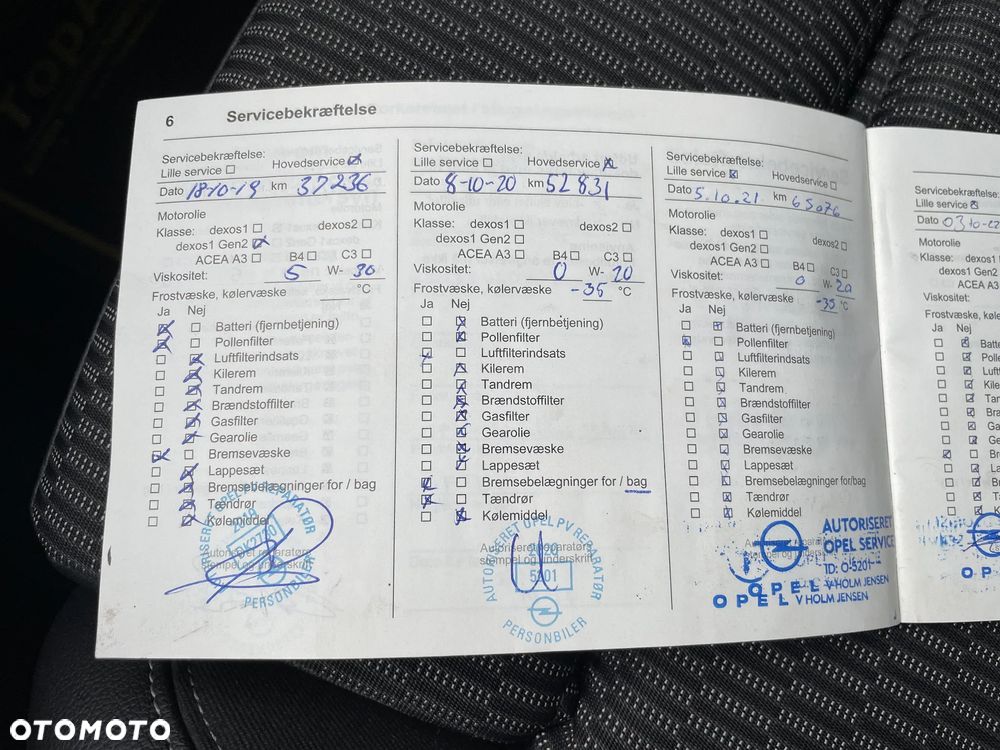 6 Servicebekræftelse
Servicebekræftelse:
Lille service ☐ Hovedservice ☒
Dato 18-10-19 km 37236
Motorolie
Klasse: dexos1 ☐ dexos2 ☐
dexos1 Gen2 ☒
ACEA A3 ☐ B4 ☐ C3 ☐
Viskositet: 5 W- 30
Frostvæske, kølervæske °C
Ja Nej
Batteri (fjernbetjening)
Pollenfilter
Luftfilterindsats
Kilerem
Tandrem
Brændstoffilter
Gasfilter
Gearolie
Bremsevæske
Lappesæt
Bremsebelægninger for / bag
Tændrør
Kølemiddel
Autoriseret reparatørs
stempel og underskrift
PERSONBILER
Servicebekræftelse:
Lille service ☐ Hovedservice ☒
Dato 8-10-20 km 52831
Motorolie
Klasse: dexos1 ☐ dexos2 ☐
dexos1 Gen2 ☐
ACEA A3 ☐ B4 ☐ C3 ☐
Viskositet: 0 W- 20
Frostvæske, kølervæske -35 °C
Ja Nej
Batteri (fjernbetjening)
Pollenfilter
Luftfilterindsats
Kilerem
Tandrem
Brændstoffilter
Gasfilter
Gearolie
Bremsevæske
Lappesæt
Bremsebelægninger for / bag
Tændrør
Kølemiddel
Autoriseret reparatørs
stempel og underskrift
AUTORISERET OPEL PV REPARATØR
2020
5201
PERSONBILER
Servicebekræftelse:
Lille service ☒ Hovedservice ☐
Dato 5.10.21 km 65076
Motorolie
Klasse: dexos1 ☐ dexos2 ☐
dexos1 Gen2 ☐
ACEA A3 ☐ B4 ☐ C3 ☐
Viskositet: 0 W- 20
Frostvæske, kølervæske -35 °C
Ja Nej
Batteri (fjernbetjening)
Pollenfilter
Luftfilterindsats
Kilerem
Tandrem
Brændstoffilter
Gasfilter
Gearolie
Bremsevæske
Lappesæt
Bremsebelægninger for/bag
Tændrør
Kølemiddel
AUTORISERET
OPEL SERVICE
ID: O-5201-
OPEL V HOLM JENSEN
OPEL V HOLM JENSEN
Servicebekræftelse:
Lille service ☒
Dato
Motorolie
Klasse: dexos1
dexos1 Gen2
ACEA A3
Viskositet:
Ja Nej
OTOMOTO